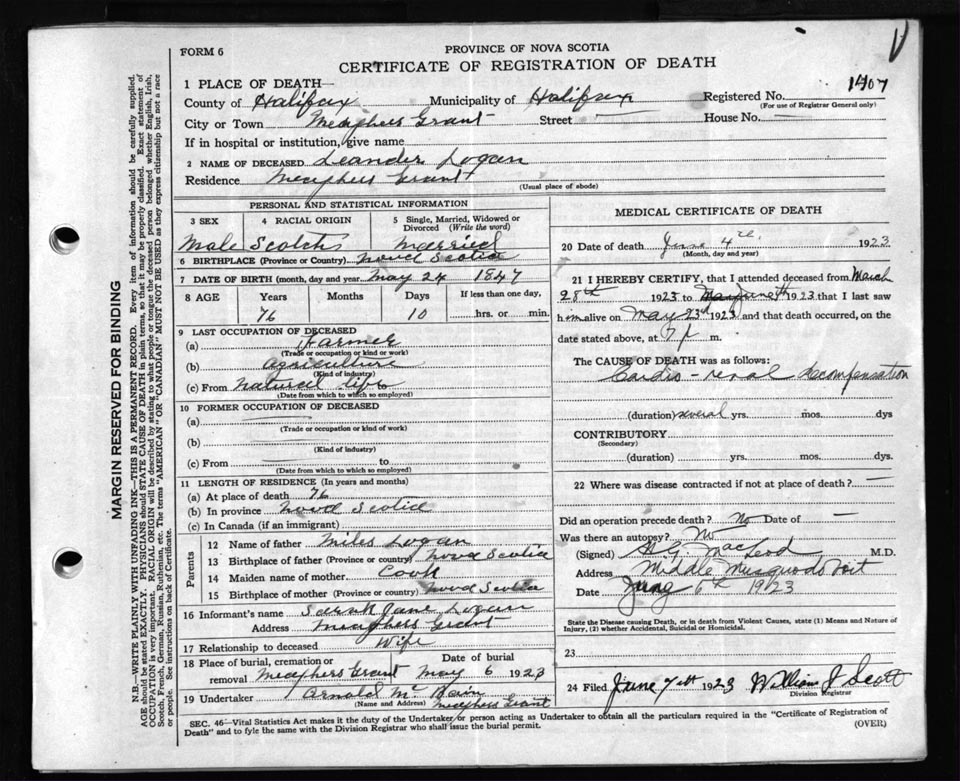 FORM 6
PROVINCE OF NOVA SCOTIA
CERTIFICATE OF REGISTRATION OF DEATH
1407
1 PLACE OF DEATH—
County of Halifax Municipality of Halifax Registered No.
(For use of Registrar General only)
City or Town Meaghers Grant Street — House No. —
If in hospital or institution, give name
2 NAME OF DECEASED Leander Logan
Residence Meaghers Grant
(Usual place of abode)
PERSONAL AND STATISTICAL INFORMATION
3 SEX 4 RACIAL ORIGIN 5 Single, Married, Widowed or Divorced (Write the word)
Male Scotch Married
6 BIRTHPLACE (Province or Country) Nova Scotia
7 DATE OF BIRTH (month, day and year) May 24 1847
8 AGE Years Months Days If less than one day,
76 10 hrs. or min.
9 LAST OCCUPATION OF DECEASED
(a) Farmer
(Trade or occupation or kind or work)
(b) Agriculture
(Kind of industry)
(c) From natural life
(Date from which to which so employed)
10 FORMER OCCUPATION OF DECEASED
(a) —
(Trade or occupation or kind of work)
(b) —
(Kind of industry)
(c) From to
(Date from which to which so employed)
11 LENGTH OF RESIDENCE (In years and months)
(a) At place of death 76
(b) In province Nova Scotia
(c) In Canada (if an immigrant)
Parents
12 Name of father Miles Logan
13 Birthplace of father (Province or country) Nova Scotia
14 Maiden name of mother Cook
15 Birthplace of mother (Province or country) Nova Scotia
16 Informant's name Sarah Jane Logan
Address Meaghers Grant
17 Relationship to deceased Wife
18 Place of burial, cremation or removal Meaghers Grant Date of burial May 6 1923
19 Undertaker Arnold
(Name and Address) Meaghers Grant
MEDICAL CERTIFICATE OF DEATH
20 Date of death June 4th 1923
(Month, day and year)
21 I HEREBY CERTIFY, that I attended deceased from March
28th 1923 to June 1923 that I last saw
him alive on May 23d 1923 and that death occurred, on the
date stated above, at 7 p m.
The CAUSE OF DEATH was as follows:
Cardio-renal decompensation
(duration) several yrs. mos. dys
CONTRIBUTORY
(Secondary)
(duration) yrs. mos. dys.
22 Where was disease contracted if not at place of death? —
Did an operation precede death? No Date of —
Was there an autopsy? No
(Signed) MacLeod M.D.
Address Middle Musquodoboit
Date June 6th 1923
State the Disease causing Death, or in death from Violent Causes, state (1) Means and Nature of
Injury, (2) whether Accidental, Suicidal or Homicidal.
23
24 Filed June 7th 1923 William J Scott
Division Registrar
SEC. 46—Vital Statistics Act makes it the duty of the Undertaker or person acting as Undertaker to obtain all the particulars required in the "Certificate of Registration of
Death" and to fyle the same with the Division Registrar who shall issue the burial permit. (OVER)
MARGIN RESERVED FOR BINDING
N.B.—WRITE PLAINLY WITH UNFADING INK—THIS IS A PERMANENT RECORD. Every item of information should be carefully supplied.
AGE should be stated EXACTLY. PHYSICIANS should STATE CAUSE OF DEATH in plain terms, so that it may be properly classified. Exact statement of
OCCUPATION is very important. RACIAL ORIGIN will be described by stating to what people or tongue the deceased person belonged whether English, Irish,
Scotch, French, German, Russian, Ruthenian, etc. The terms "AMERICAN" OR "CANADIAN" MUST NOT BE USED as they express citizenship but not a race
or people. See instructions on back of Certificate.